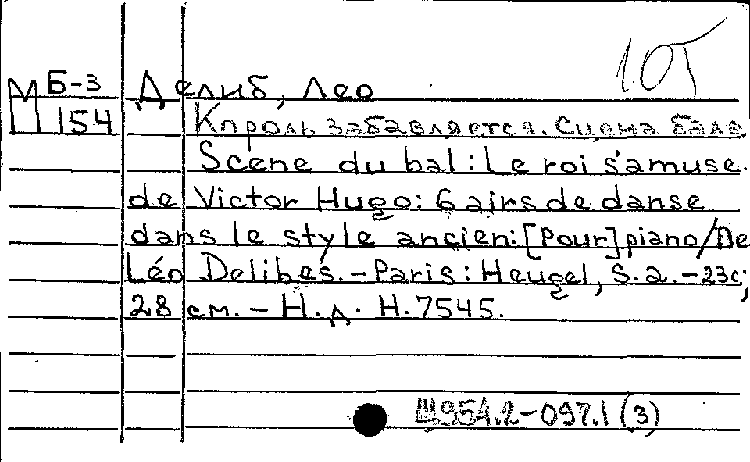 105
М Б-3 Делиб, Лео
154 Кпроль забавляется. Сцена бала
Scene du bal: Le roi s'amuse
de Victor Hugo: 6 airs de danse
dans le style ancien: [Pour] piano/De
Léo Delibes. - Paris: Heugel, S.a. - 23с;
28 см. - Н.д. H.7545.
Щ954.2-097.1 (3)